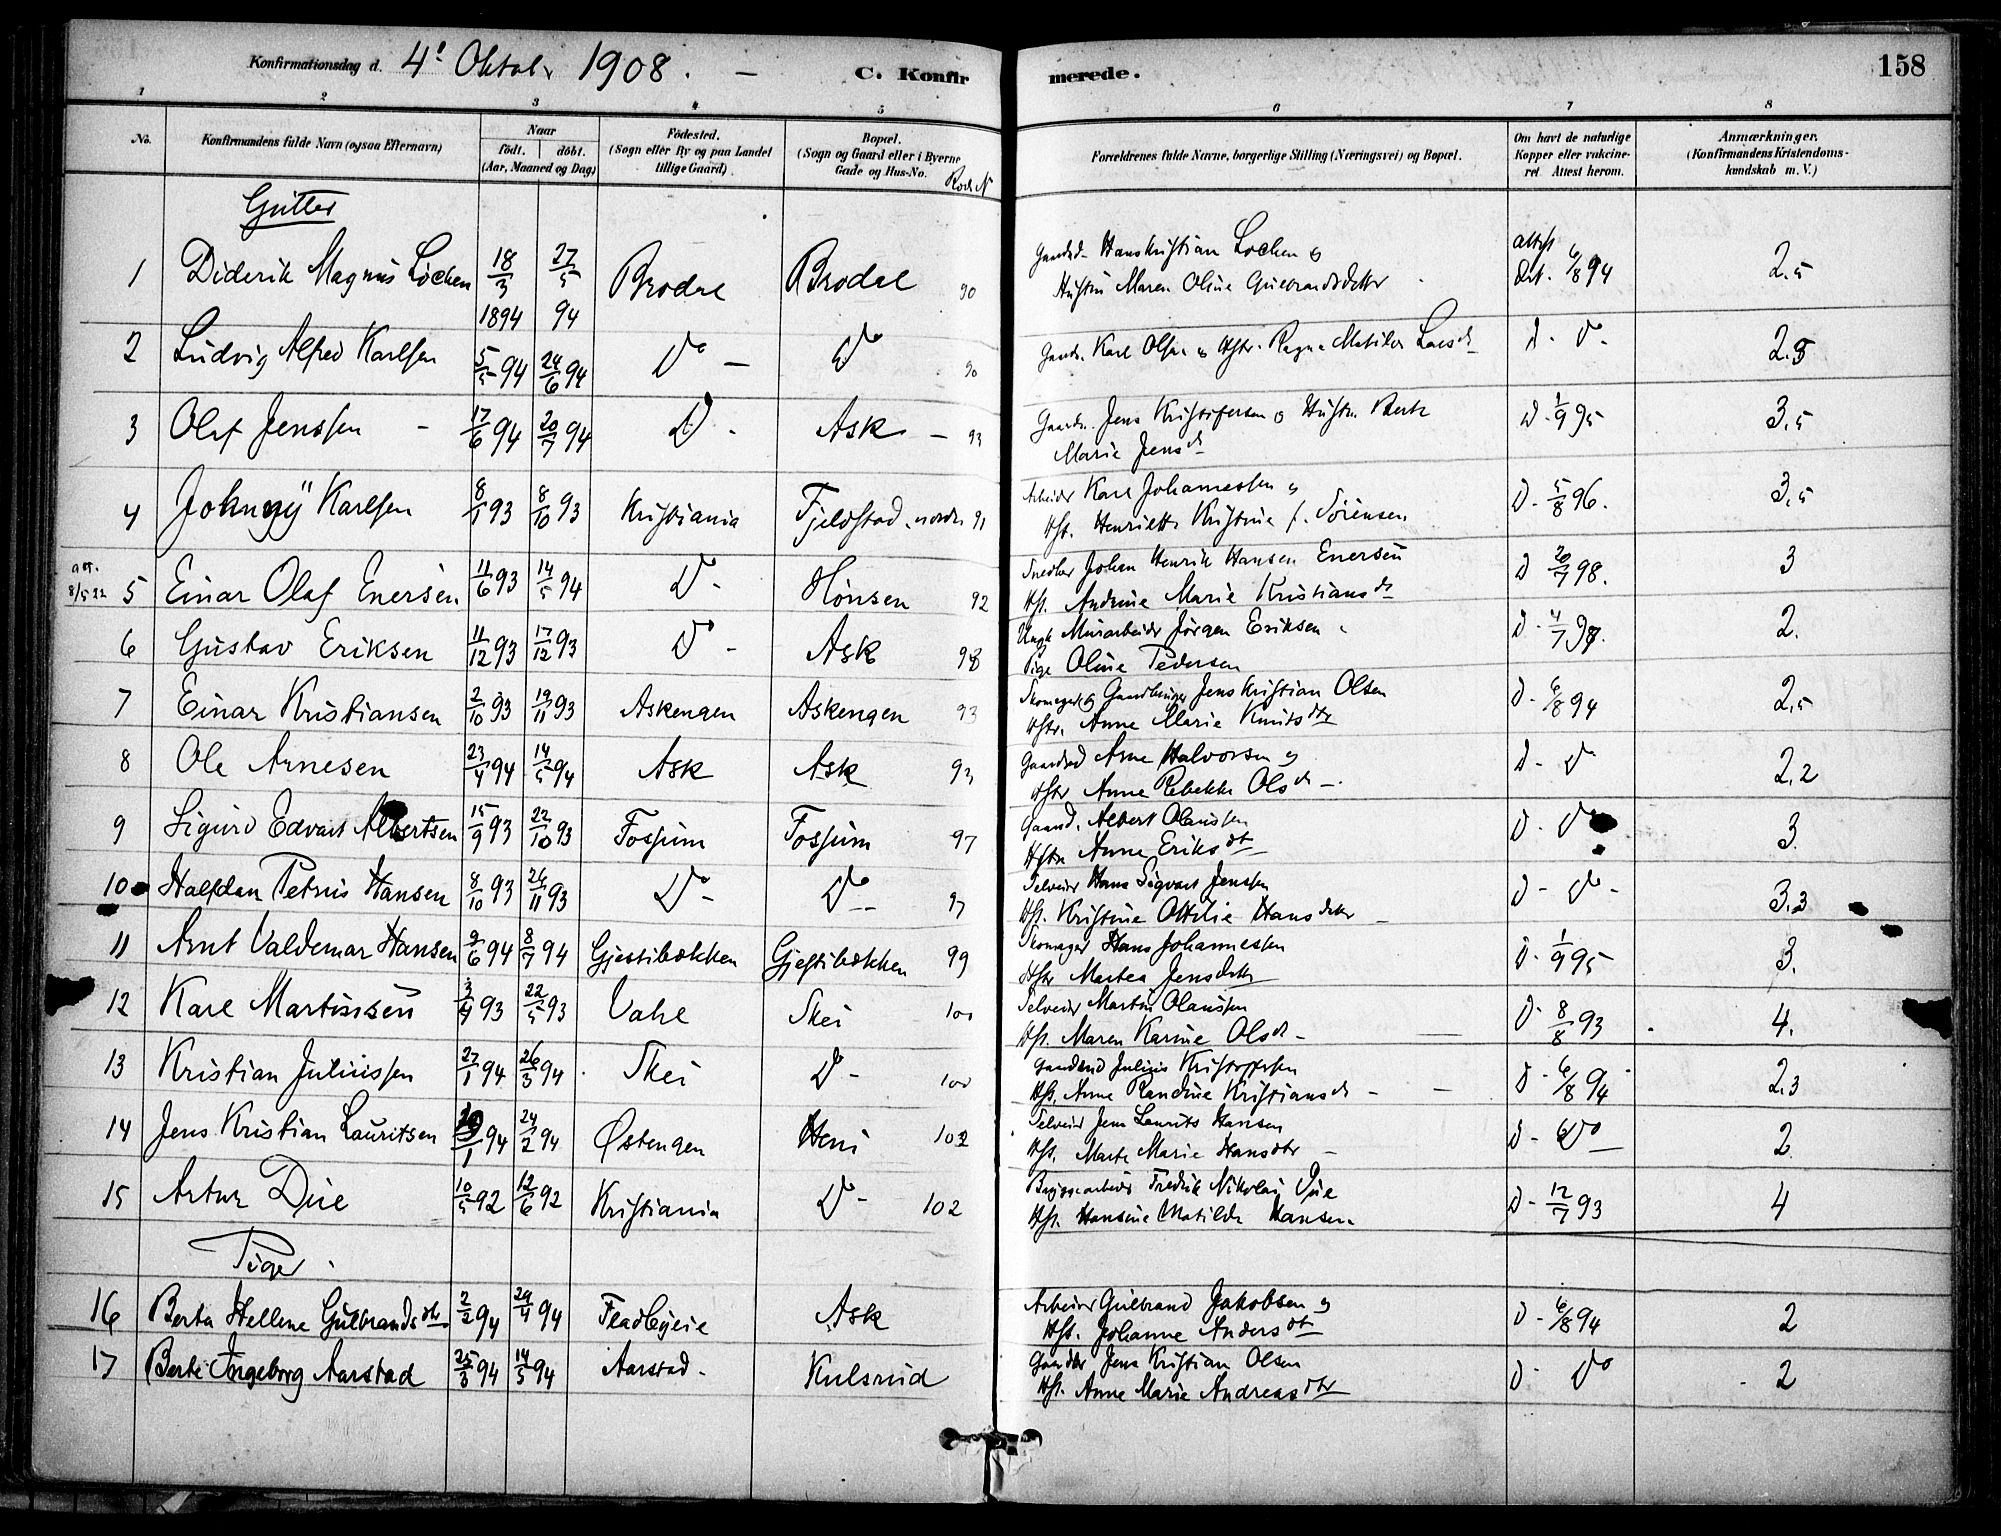 Konfirmationsdag d. 4de Oktobr 1908. — C. Konfirmerede. 158
1 2 3 4 5 6 7 8
No. Konfirmandens fulde Navn (ogsaa Efternavn) Naar födt. döbt. (Aar, Maaned og Dag) Födested. (Sogn eller By og paa Landet tillige Gaard). Bopæl. (Sogn og Gaard eller i Byerne Gade og Hus-No. Rode N Forældrenes fulde Navne, borgerlige Stilling (Næringsvei) og Bopæl. Om havt de naturlige Kopper eller vakcineret. Attest herom. Anmærkninger. (Konfirmandens Kristendomskundskab m. V.)
Gutter
1 Diderik Magnus Lochen 18/3 1894 27/5 94 Brodal Brodal 90 Gaardbr. Hans Kristian Lochen og
Hustru Maren Oline Gulbrandsdatter attest Dat. 6/8 94 2,5
2 Ludvig Alfred Karlsen 5/5 94 24/6 94 Do — Do 90 Gaardbr. Karl Olsen og Hstr. Ragna Matilde Larsd. D - Do - 2.5
3 Olaf Jenssen - 17/6 94 20/7 94 Do - Ask — 93 Gaardbr. Jens Kristofersen og Hustru Berte
Marie Jensd. D - 1/9 95 3,5
4 Johnny Karlsen 8/1 93 8/10 93 Kristiania Fjeldstad nordre 91 Arbeider Karl Johannessen og
Hst. Henriette Kristine f. Sörensen D - 5/8 96. 3,5
att. 8/5 22
5 Einar Olaf Enersen 11/6 93 14/5 94 Do - Hönsen 92 Snedker Johan Henrik Hansen Enersen
Hst. Andrine Marie Kristiansdr. D 20/7 98. 3
6 Gustav Eriksen 11/12 93 17/12 93 Do - Ask 98 Ungk. Murarbeider Jörgen Eriksen
Pige Oline Pedersen D - 4/7 98. 2.
7 Einar Kristiansen 2/10 93 19/11 93 Askengen Askengen 93 Skomager og Gaardbruger Jens Kristian Olsen
Hstr. Anne Marie Knutsdtr D - 6/8 94 2,5
8 Ole Arnesen 23/4 94 14/5 94 Ask Ask 93 Gaardbr. Arne Halvorsen og
Hstr Anne Rebekka Olsdr. — D - Do 2,2
9 Sigurd Edvart Albertsen 15/9 93 22/10 93 Fossum Fossum 97 Gaardb. Albert Olaussen
Hstr Anne Eriksdtr D - Do 3.
10 Halfdan Petrus Hansen 8/10 93 26/11 93 Do - Do — 97 Selveier Hans Sigvart Jenssen
Hst. Kristine Otilie Hansdatter — D - Do - 3,3
11 Arnt Valdemar Hansen 9/6 94 8/7 94 Gjestibækken Gjestibækken 99 Skomager Hans Johannessen
Hstr Martea Jensdatter D - 1/9 95 3.
12 Karl Martinsen 3/4 93 22/5 93 Vahl Skei 100 Selveier Martin Olaussen
Hst. Maren Karine Olsdr. - D - 8/8 93 4.
13 Kristian Juliussen 27/1 94 26/3 94 Skei Do - 100 Gaardbrd Julius Kristoffersen
Hst. Anne Randine Kristiansdr. — D - 6/8 94 2,3
14 Jens Kristian Lauritsen 1 94 24/2 94 Østengen Heni 102 Selveier Jens Laurits Hansen
Hst. Marte Marie Hansdtr — D - Do 2.
15 Artur Due 10/5 92 12/6 92 Kristiania Do - 102 Bryggearbeider Fredrik Nikolai Due
Hst. Hansine Matilde Hansen D - 12/7 93 4
Piger.
16 Berta Hellene Gulbrandsdtr 2/2 94 29/4 94 Ask Arbeider Gulbrand Jakobsen og
Hst. Johanne Andersdtr D - 6/8 94 2
17 Berte Ingeborg Aarstad 25/3 94 14/5 94 Aarstad - Kulsrud Gaardbr Jens Kristian Olsen
Hst. Anne Marie Andreasdtr D - Do 2